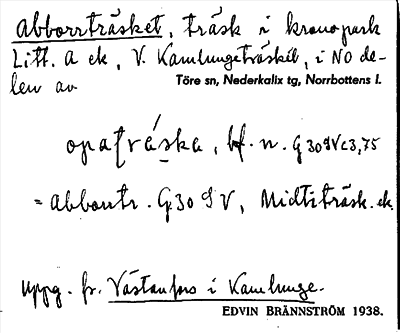 Abborrträsket, träsk i kronopark
Litt. A ek, V. Kamlungeträsket, i NO de-
len av
Töre sn, Nederkalix tg, Norrbottens l.
bf. n. G 30 9 V c 3,75
= abborrtr. G 30 9 V, Midtiträsk. ek.
Uppg. fr. Västanfors i Kamlunge.
EDVIN BRÄNNSTRÖM 1938.